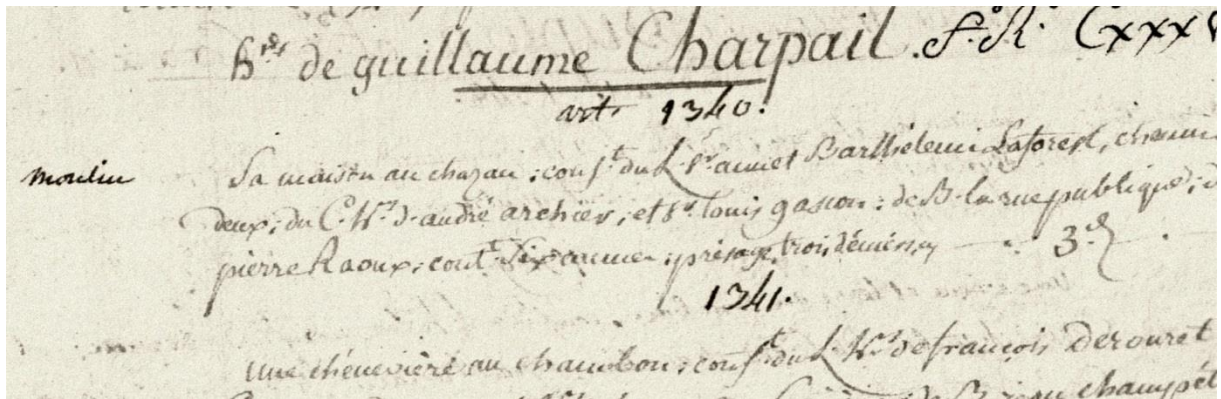 h.rs de guillaume Charpail. f.R. Cxxx
art. 1340.
moulin
Sa maison au chazau; conf.t du L. Sr. annet Barthélemi Laforest, chemin
deux; du C. h.rs d'andré archier, et Sr. Louis gascon; de B. la rue publique; d
pierre Raoux; cont. six cannes; présage trois déniers, 3.d
1341.
une chénevière au chambon; conf.t du L. h.rs de françois derouret
de B. champ